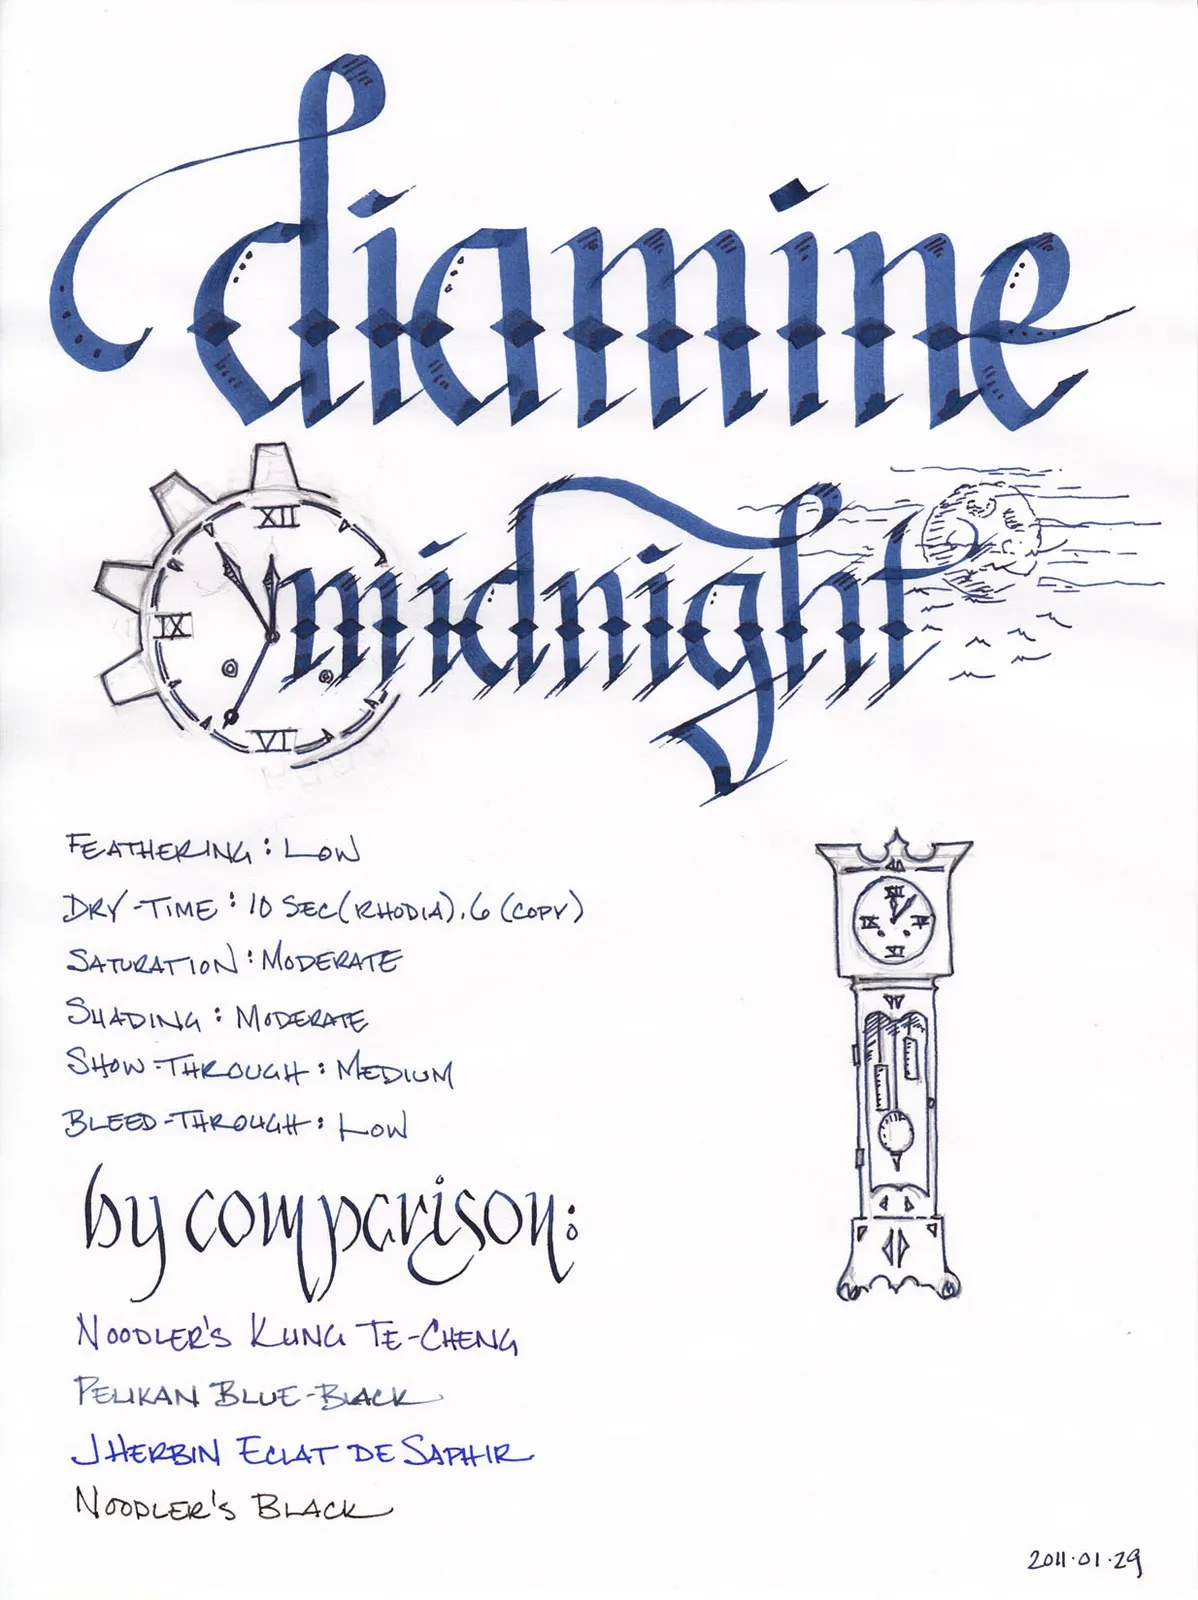 diamine
XII
midnight
IX
VI
FEATHERING: LOW
DRY-TIME: 10 SEC (RHODIA). 6 (COPY)
SATURATION: MODERATE
SHADING: MODERATE
SHOW-THROUGH: MEDIUM
BLEED-THROUGH: LOW
XII
IX
VI
by comparison:
NOODLER'S KUNG TE-CHENG
PELIKAN BLUE-BLACK
J HERBIN ECLAT DE SAPHIR
NOODLER'S BLACK
2011·01·29